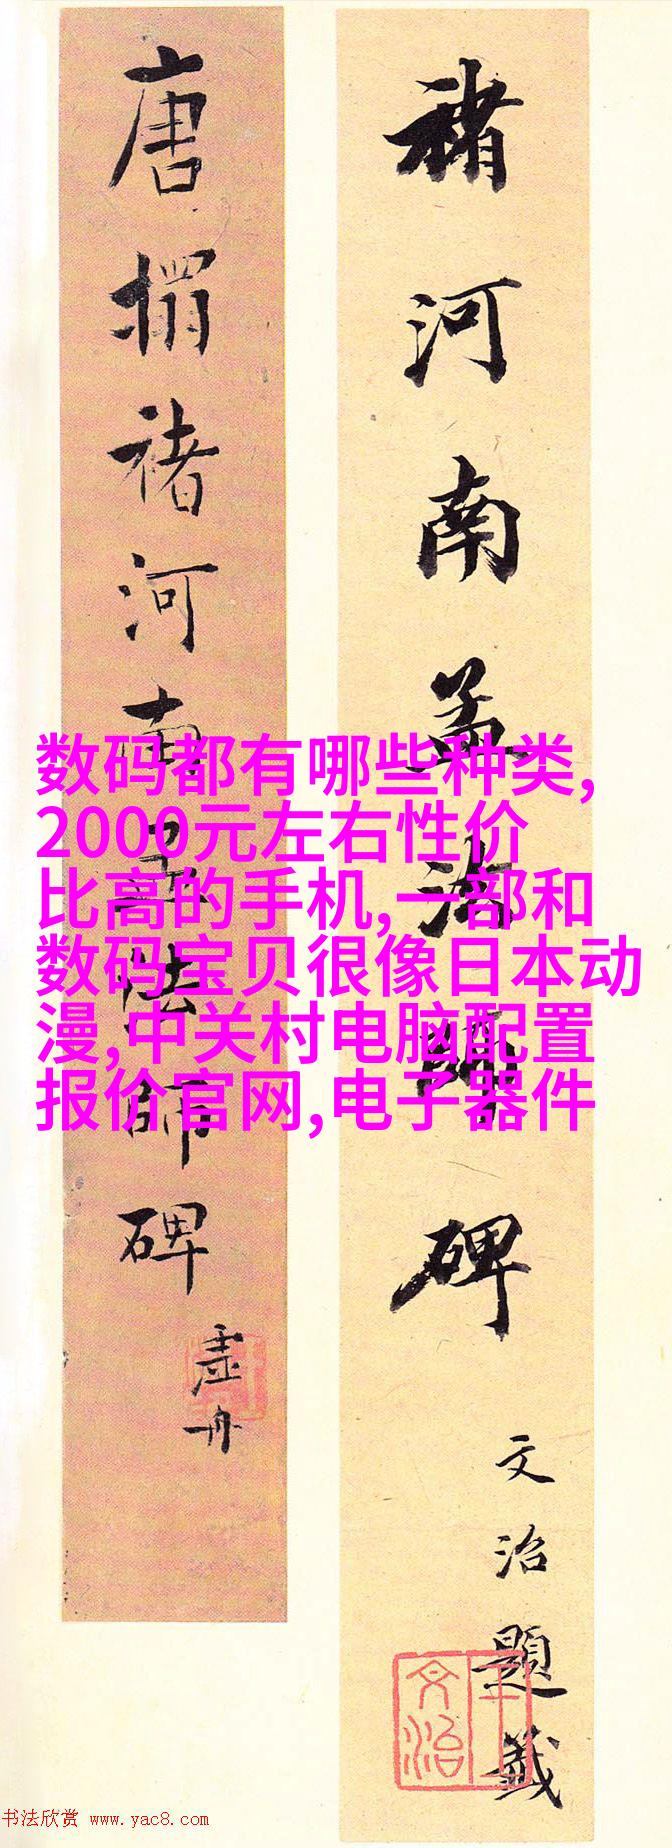 褚河南孟法師碑
文治題籤
唐搨褚河南孟法師碑
虛舟
数码都有哪些种类,
2000元左右性价
比高的手机,一部和
数码宝贝很像日本动
漫,中关村电脑配置
报价官网,电子器件
书法欣赏 www.yac8.com